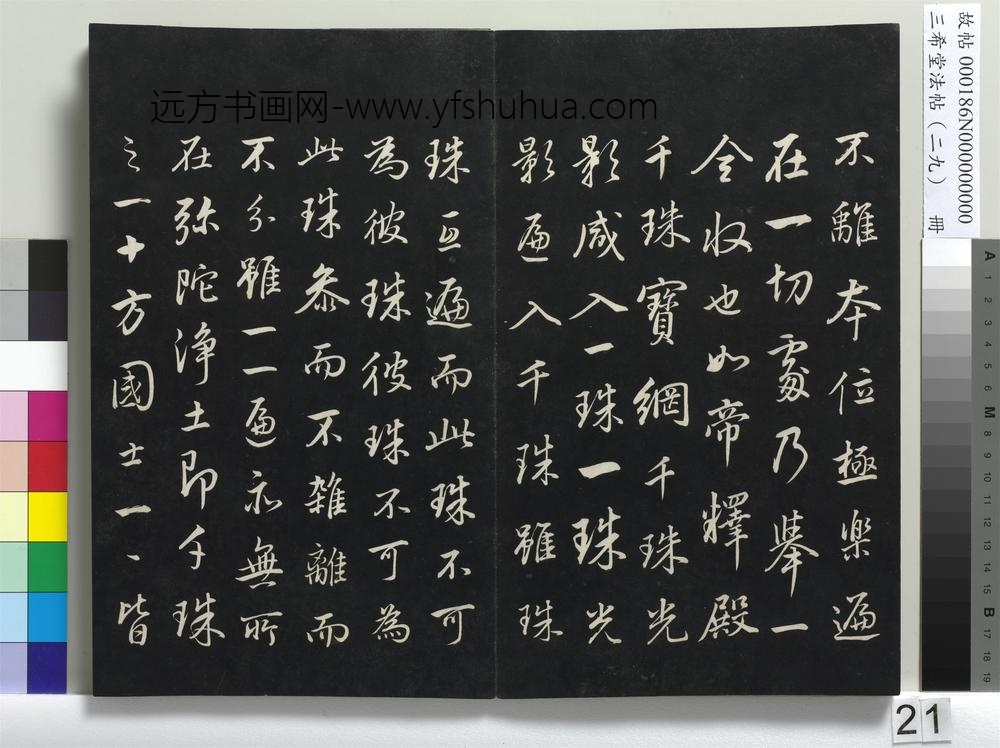 远方书画网-www.yfshuhua.com
故帖 000186N000000000
三希堂法帖（二九） 冊
不離本位極樂遍
在一切處乃舉一
全收也如帝釋殿
千珠寶網千珠光
影咸入一珠一珠光
影遍入千珠雖珠
珠互遍而此珠不可
為彼珠彼珠不可為
此珠參而不雜離而
不分雖一一遍亦無所
在弥陀淨土即千珠
之一十方國土一、皆
A 1 2 3 4 5 6 M 8 9 10 11 12 13 14 15 B 17 18 19
21